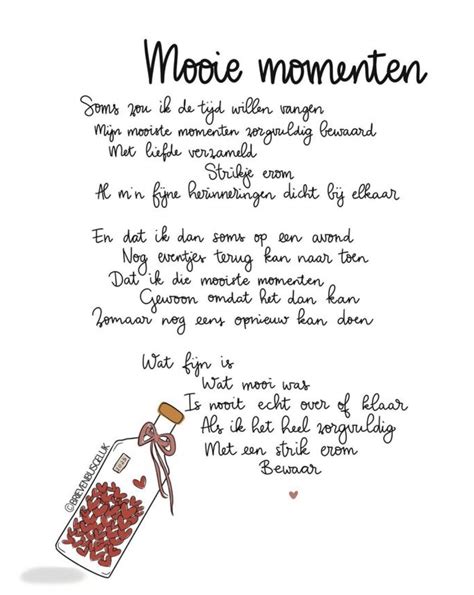 Mooie momenten
Soms zou ik de tijd willen vangen
Mijn mooiste momenten zorgvuldig bewaard
Met liefde verzameld
Strikje erom
Al m'n fijne herinneringen dicht bij elkaar
En dat ik dan soms op een avond
Nog eventjes terug kan naar toen
Dat ik die mooiste momenten
Gewoon omdat het dan kan
Zomaar nog eens opnieuw kan doen
Wat fijn is
Wat mooi was
Is nooit echt over of klaar
Als ik het heel zorgvuldig
Met een strik erom
Bewaar
©BRIEVENBUSGELUK